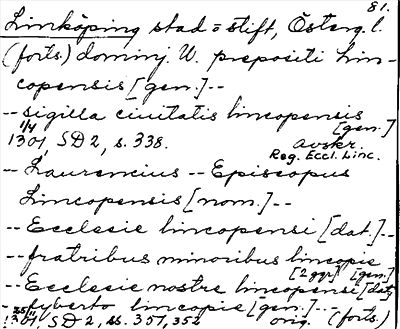 81.
Linköping stad o stift, Österg. l.
(forts.) dominj W. prepositi lin-
copensis [gen.] --
-- sigilla ciuitatis lincopensis
[gen.]
1/4 1301, SD 2, s. 338. avskr.
Reg. Eccl. Linc.
-- Laurencius -- Episcopus
Lincopensis [nom.] --
-- Ecclesie lincopensi [dat.] --
-- fratribus minoribus lincopie
[2 ggr] [gen.]
-- Ecclesie nostre lincopensi [dat.]
-- lyberto lincopie [gen.] --
1301, SD 2, ss. 351, 352 orig. (forts.)